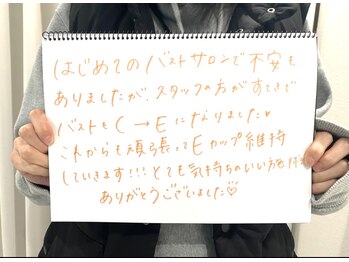 はじめてのバストサロンで不安も
ありましたが、スタッフの方がすてきで
バストもC→Eになりました♥
これからも頑張ってEカップ維持
していきます!!!とても気持ちのいい方で
ありがとうございました♡